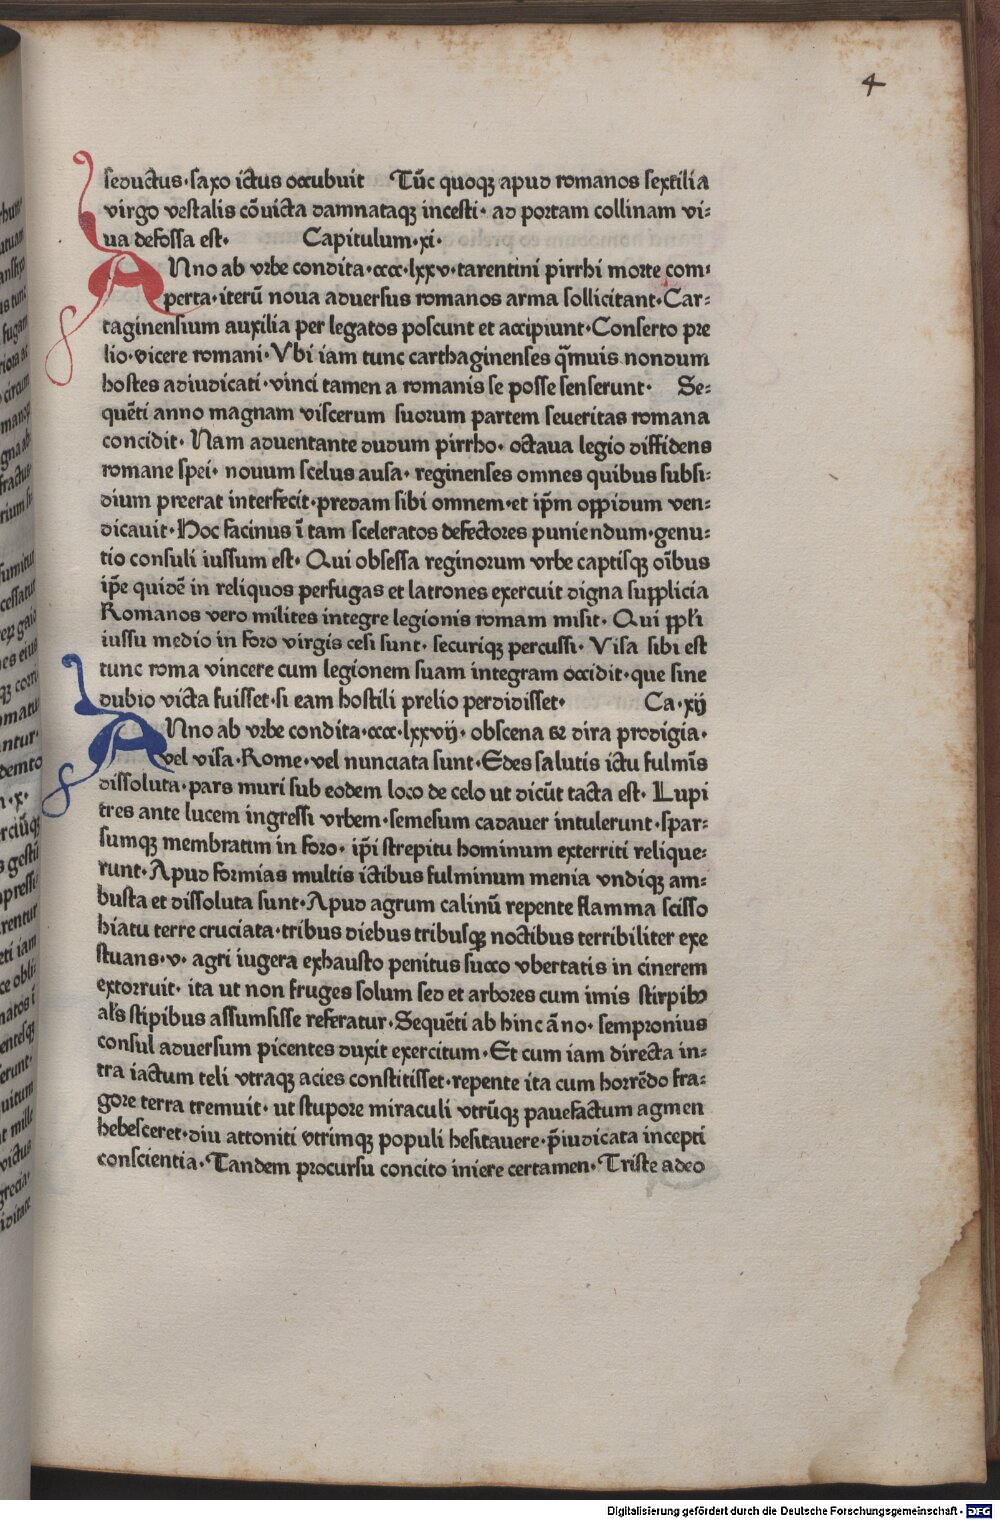 4
seductus·saxo ictus occubuit Tūc quoqꝫ apud romanos sextilia
virgo vestalis cōuicta damnataqꝫ incesti· ad portam collinam vi⸗
ua defossa est· Capitulum·xi·
ANno ab vrbe condita·cccc·lxxv·tarentini pirrhi morte com⸗
perta·iterū noua aduersus romanos arma sollicitant·Car⸗
taginensium auxilia per legatos poscunt et accipiunt·Conserto pre
lio·vicere romani·Vbi iam tunc carthaginenses q̄muis nondum
hostes adiudicati·vinci tamen a romanis se posse senserunt· Se⸗
quēti anno magnam viscerum suorum partem seueritas romana
concidit· Nam aduentante dudum pirrho· octaua legio diffidens
romane spei· nouum scelus ausa· reginenses omnes quibus subsi⸗
dium preerat interfecit·predam sibi omnem·et ip̄m oppidum ven⸗
dicauit·Hoc facinus ī tam sceleratos defectores puniendum·genu⸗
tio consuli iussum est· Qui obsessa reginorum vrbe captisqꝫ oībus
ip̄e quidē in reliquos perfugas et latrones exercuit digna supplicia
Romanos vero milites integre legionis romam misit· Qui ppl̄i
iussu medio in foro virgis cesi sunt· securiqꝫ percussi· Visa sibi est
tunc roma vincere cum legionem suam integram occidit·que sine
dubio victa fuisset·si eam hostili prelio perdidisset· Ca·xij
ANno ab vrbe condita·cccc·lxxvij· obscena ⁊ dira prodigia·
vel visa·Rome·vel nunciata sunt·Edes salutis ictu fulmīs
dissoluta·pars muri sub eodem loco de celo ut dicūt tacta est· Lupi
tres ante lucem ingressi vrbem·semesum cadauer intulerunt·spar⸗
sumqꝫ membratim in foro· ip̄i strepitu hominum exterriti relique⸗
runt·Apud formias multis ictibus fulminum menia vndiqꝫ am⸗
busta et dissoluta sunt·Apud agrum calinū repente flamma scisso
hiatu terre cruciata·tribus diebus tribusqꝫ noctibus terribiliter exe
stuans·v· agri iugera exhausto penitus succo vbertatis in cinerem
extorruit· ita ut non fruges solum sed et arbores cum imis stirpibꝰ
al̄s stipibus assumsisse referatur·Sequēti ab hinc āno· sempronius
consul aduersum picentes duxit exercitum·Et cum iam directa in⸗
tra iactum teli vtraqꝫ acies constitisset·repente ita cum horrēdo fra⸗
gore terra tremuit· ut stupore miraculi vtrūqꝫ pauefactum agmen
hebesceret·diu attoniti vtrimqꝫ populi hesitauere·p̄iudicata incepti
conscientia·Tandem procursu concito iniere certamen·Triste adeo
Digitalisierung gefördert durch die Deutsche Forschungsgemeinschaft - DFG